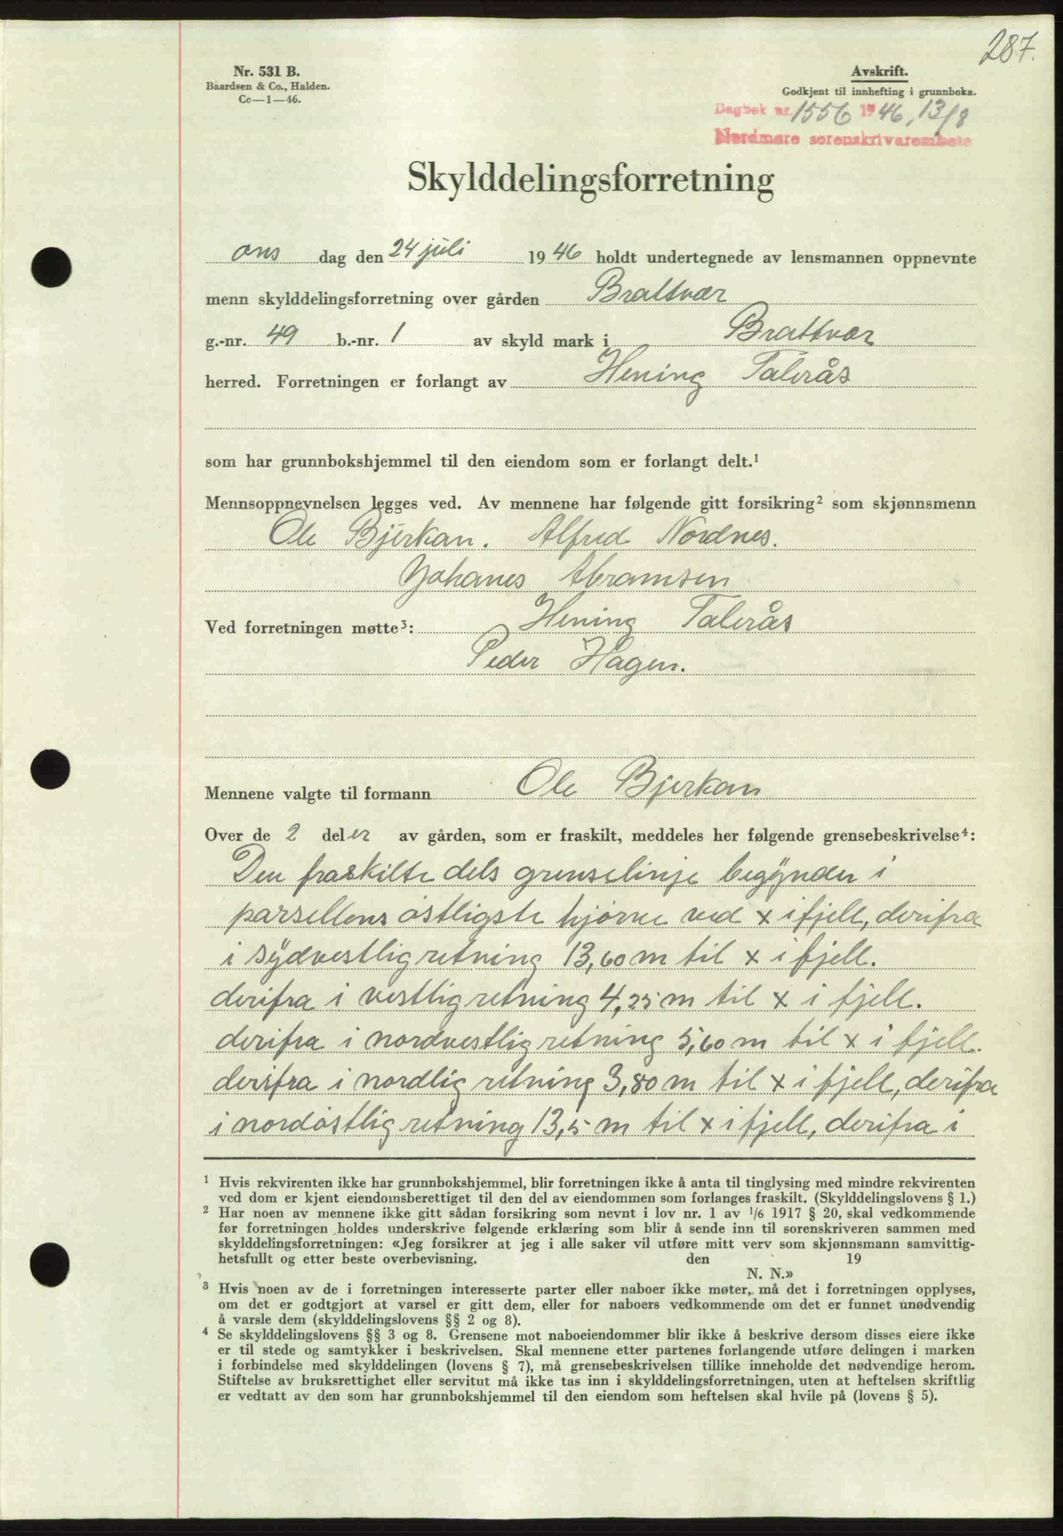 287.
Nr. 531 B.
Baardsen & Co., Halden.
Cc—1—46.
Avskrift.
Godkjent til innhefting i grunnboka.
Dagbok nr. 1556 1946, 13/8
Nordmøre sorenskrivarembete
Skylddelingsforretning
ons dag den 24 juli 1946 holdt undertegnede av lensmannen oppnevnte
menn skylddelingsforretning over gården Brattvær
g.-nr. 49 b.-nr. 1 av skyld mark i Brattvær
herred. Forretningen er forlangt av Hening Talerås
som har grunnbokshjemmel til den eiendom som er forlangt delt.¹
Mennsoppnevnelsen legges ved. Av mennene har følgende gitt forsikring² som skjønnsmenn
Ole Bjerkan. Alfred Nordnes.
Johanes Abramsen
Ved forretningen møtte³: Hening Talerås
Peder Hagen.
Mennene valgte til formann Ole Bjerkan
Over de 2 deler av gården, som er fraskilt, meddeles her følgende grensebeskrivelse⁴:
Den fraskilte dels grenselinje begynder i
parsellens østligste hjørne ved x i fjell, derifra
i sydvestlig retning 13,60 m til x i fjell.
derifra i vestlig retning 4,25 m til x i fjell.
derifra i nordvestlig retning 5,60 m til x i fjell.
derifra i nordlig retning 3,80 m til x i fjell, derifra
i nordøstlig retning 13,5 m til x i fjell, derifra i
¹ Hvis rekvirenten ikke har grunnbokshjemmel, blir forretningen ikke å anta til tinglysing med mindre rekvirenten
ved dom er kjent eiendomsberettiget til den del av eiendommen som forlanges fraskilt. (Skylddelingslovens § 1.)
² Har noen av mennene ikke gitt sådan forsikring som nevnt i lov nr. 1 av 1/6 1917 § 20, skal vedkommende
før forretningen holdes underskrive følgende erklæring som blir å sende inn til sorenskriveren sammen med
skylddelingsforretningen: «Jeg forsikrer at jeg i alle saker vil utføre mitt verv som skjønnsmann samvittig-
hetsfullt og etter beste overbevisning. den 19
N. N.»
³ Hvis noen av de i forretningen interesserte parter eller naboer ikke møter, må det i forretningen opplyses,
om det er godtgjort at varsel er gitt dem, eller for naboers vedkommende om det er funnet unødvendig
å varsle dem (skylddelingslovens §§ 2 og 8).
⁴ Se skylddelingslovens §§ 3 og 8. Grensene mot naboeiendommer blir ikke å beskrive dersom disses eiere ikke
er til stede og samtykker i beskrivelsen. Skal mennene etter partenes forlangende utføre delingen i marken
i forbindelse med skylddelingen (lovens § 7), må grensebeskrivelsen tillike inneholde det nødvendige herom.
Stiftelse av bruksrettighet eller servitut må ikke tas inn i skylddelingsforretningen, uten at heftelsen skriftlig
er vedtatt av den som har grunnbokshjemmel til den eiendom som heftelsen skal hvile på (lovens § 5).